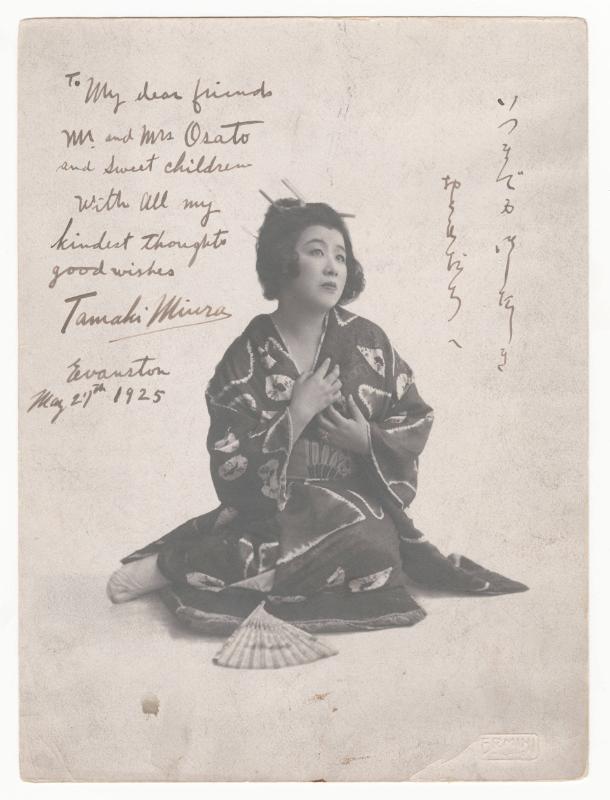 To My dear friends
Mr. and Mrs Osato
and sweet children
With all my
kindest thoughts
good wishes
Tamaki Miura
Evanston
May 27th 1925
いつまでも
おともだちへ